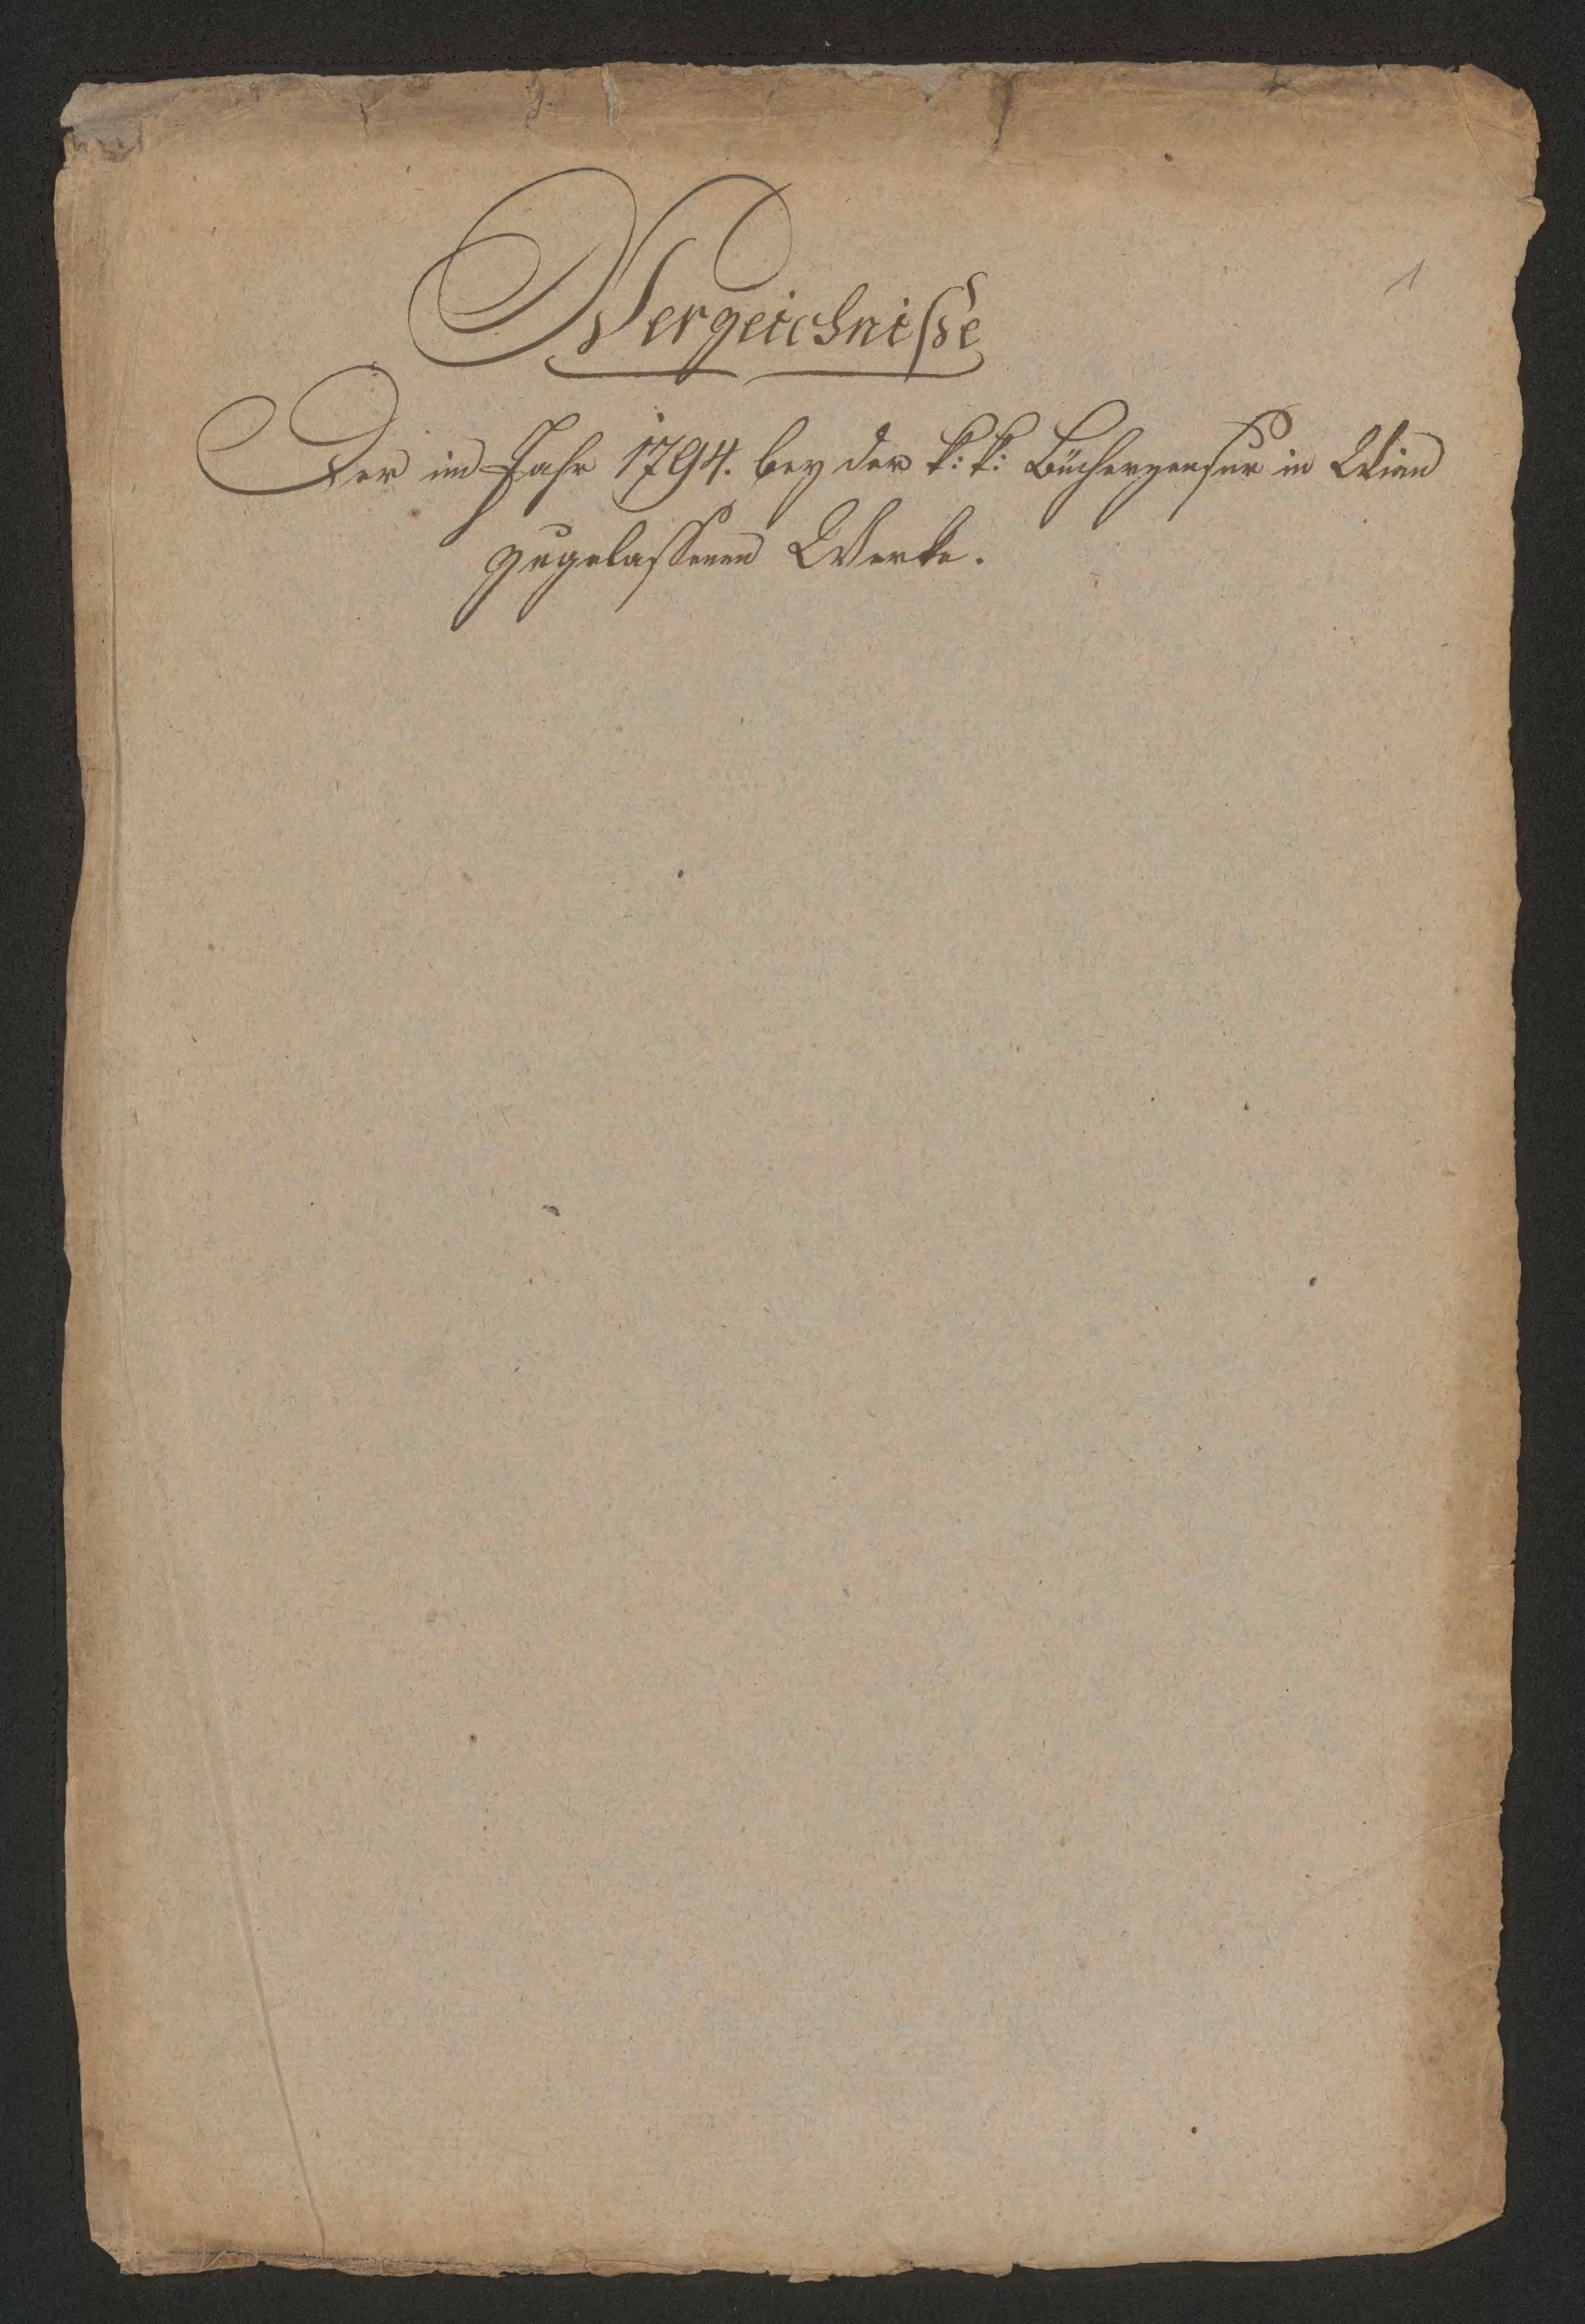 1
Verzeichniße
Der im Jahr 1794. bey der k: k: Bücherzensur in Wien
zugelassenen Werke.